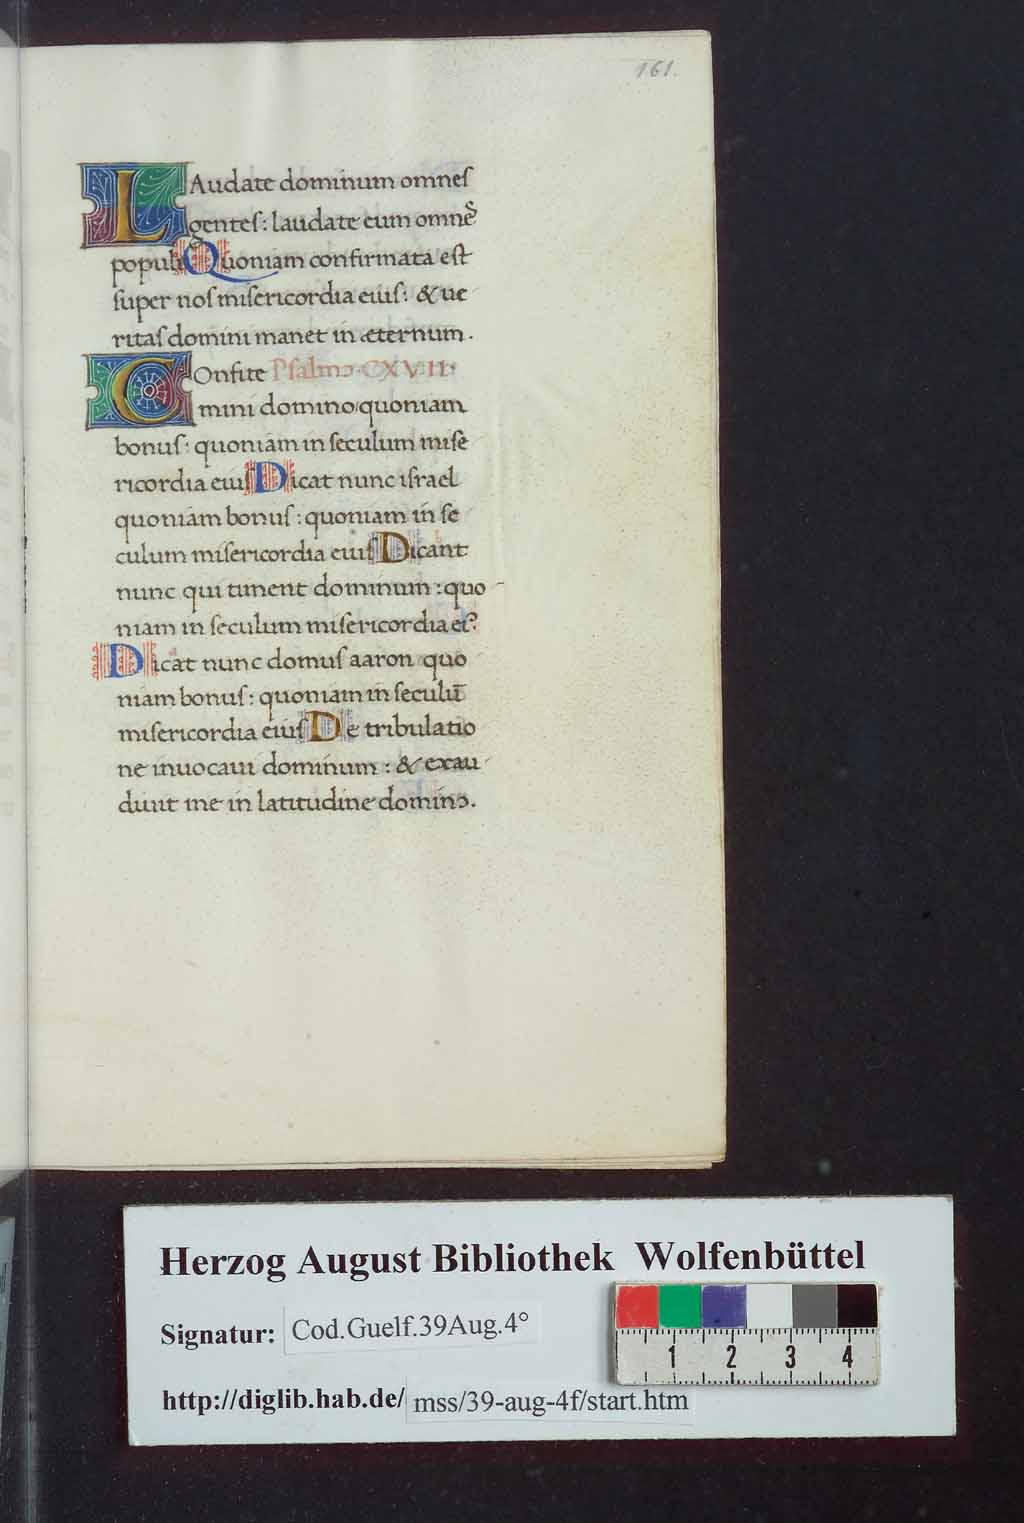 161.
LAudate dominum omneſ
genteſ: laudate eum omnẽſ
populi Quoniam confirmata eſt
ſuper noſ miſericordia eiuſ: & ue
ritaſ domini manet in æternum.
COnfite Pſalmo CXVII.
mini domino quoniam
bonuſ: quoniam in ſeculum miſe
ricordia eiuſ Dicat nunc iſrael
quoniam bonuſ: quoniam in ſe
culum miſericordia eiuſ Dicant
nunc qui timent dominum: quo-
niam in ſeculum miſericordia ei?
Dicat nunc domuſ aaron quo
niam bonuſ: quoniam in ſeculū
miſericordia eiuſ De tribulatio
ne inuocaui dominum: & exau-
diuit me in latitudine domino.
Herzog August Bibliothek Wolfenbüttel
Signatur: Cod.Guelf.39Aug.4°
1 2 3 4
http://diglib.hab.de/ mss/39-aug-4f/start.htm